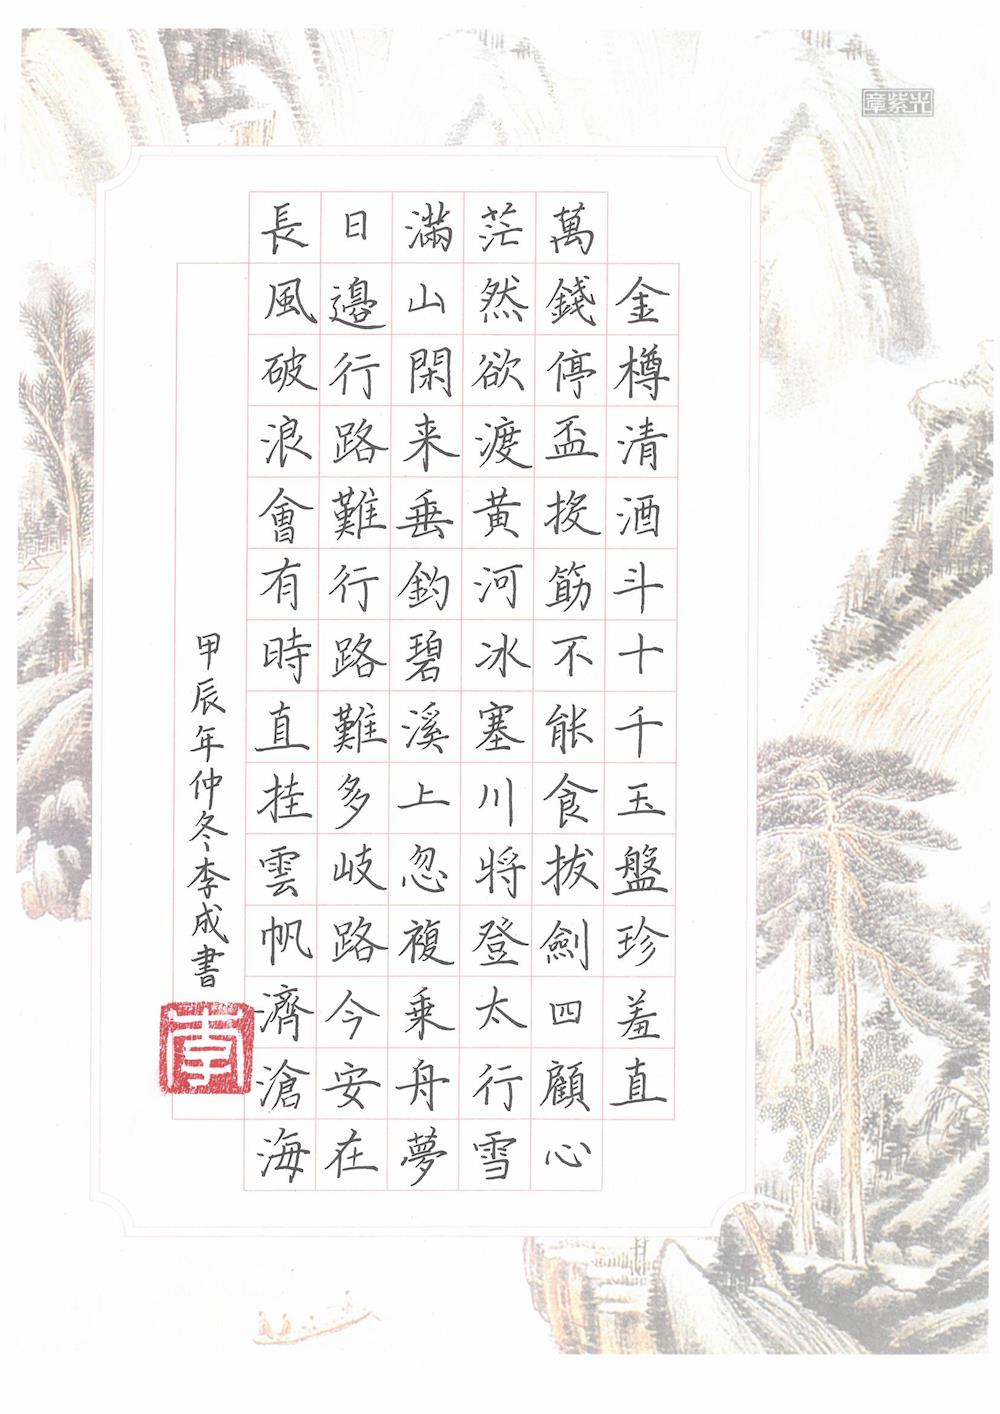 章紫光
金樽清酒斗十千玉盤珍羞直
萬錢停盃投筯不能食拔劍四顧心
茫然欲渡黄河冰塞川將登太行雪
滿山閑来垂釣碧溪上忽複乘舟夢
日邊行路難行路難多岐路今安在
長風破浪會有時直挂雲帆濟滄海
甲辰年仲冬李成書
李